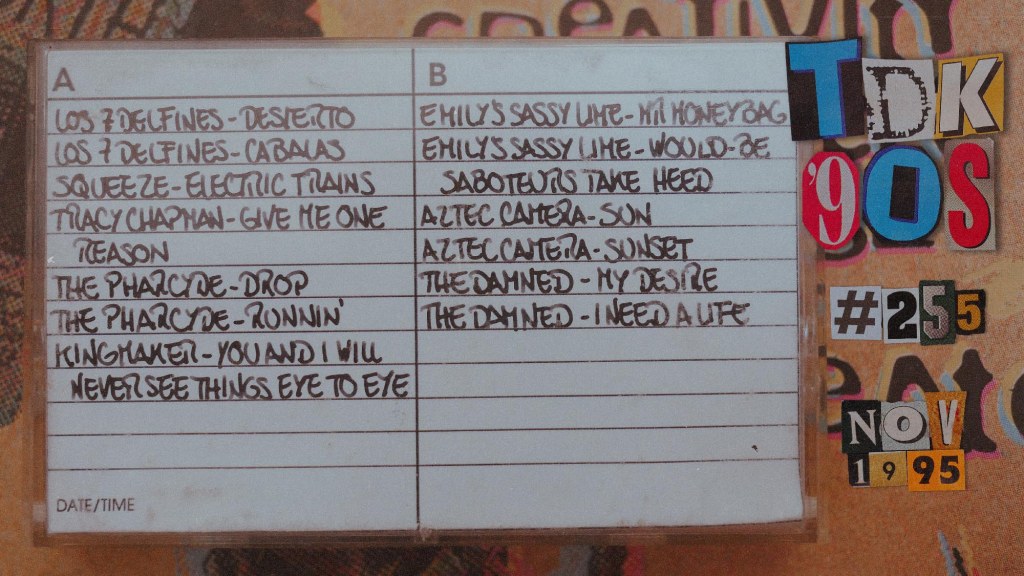 CREATIVITY
A
LOS 7 DELFINES - DESIERTO
LOS 7 DELFINES - CABALAS
SQUEEZE - ELECTRIC TRAINS
TRACY CHAPMAN - GIVE ME ONE
REASON
THE PHARCYDE - DROP
THE PHARCYDE - RUNNIN'
KINGMAKER - YOU AND I WILL
NEVER SEE THINGS EYE TO EYE
DATE/TIME
B
EMILY'S SASSY LIME - MR MONEYBAG
EMILY'S SASSY LIME - WOULD-BE
SABOTEURS TAKE HEED
AZTEC CAMERA - SUN
AZTEC CAMERA - SUNSET
THE DAMNED - MY DESIRE
THE DAMNED - I NEED A LIFE
TDK
'90S
#255
NOV
1995